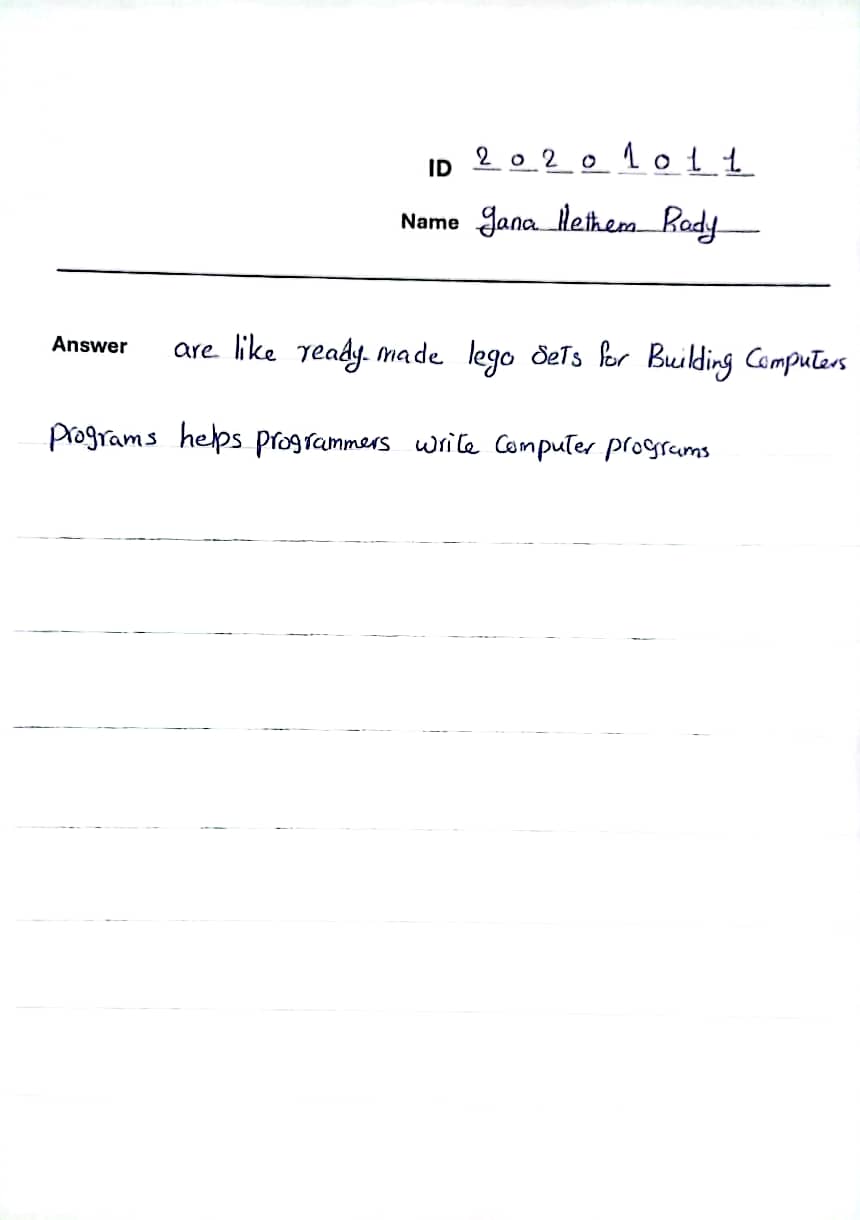 ID 20201011
Name gana Hethem Rady
Answer are like ready-made lego sets for Building Computers
Programs helps programmers write Computer programs